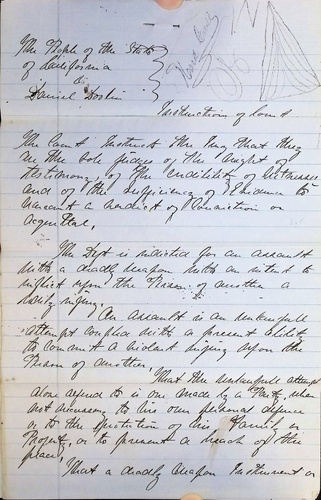 The People of the State
of California
vs
Daniel
Instruction of Court
The Court Instruct the Jury that they
are the sole judges of the weight of
testimony, of the credibility of witnesses
and of the sufficiency of Evidence to
warrant a verdict of Conviction or
acquittal.
The Deft is indicted for an assault
with a deadly weapon with an intent to
inflict upon the Person of another a
bodily injury.
An assault is an unlawfull
attempt coupled with a present ability
to commit a violent injury upon the
Person of another.
That the unlawfull attempt
alone refered to is one made by a Party when
not necessary to his own personal defence
or to the protection of his Family or
Property, or to prevent a breach of the
peace,
That a deadly weapon Instrument or